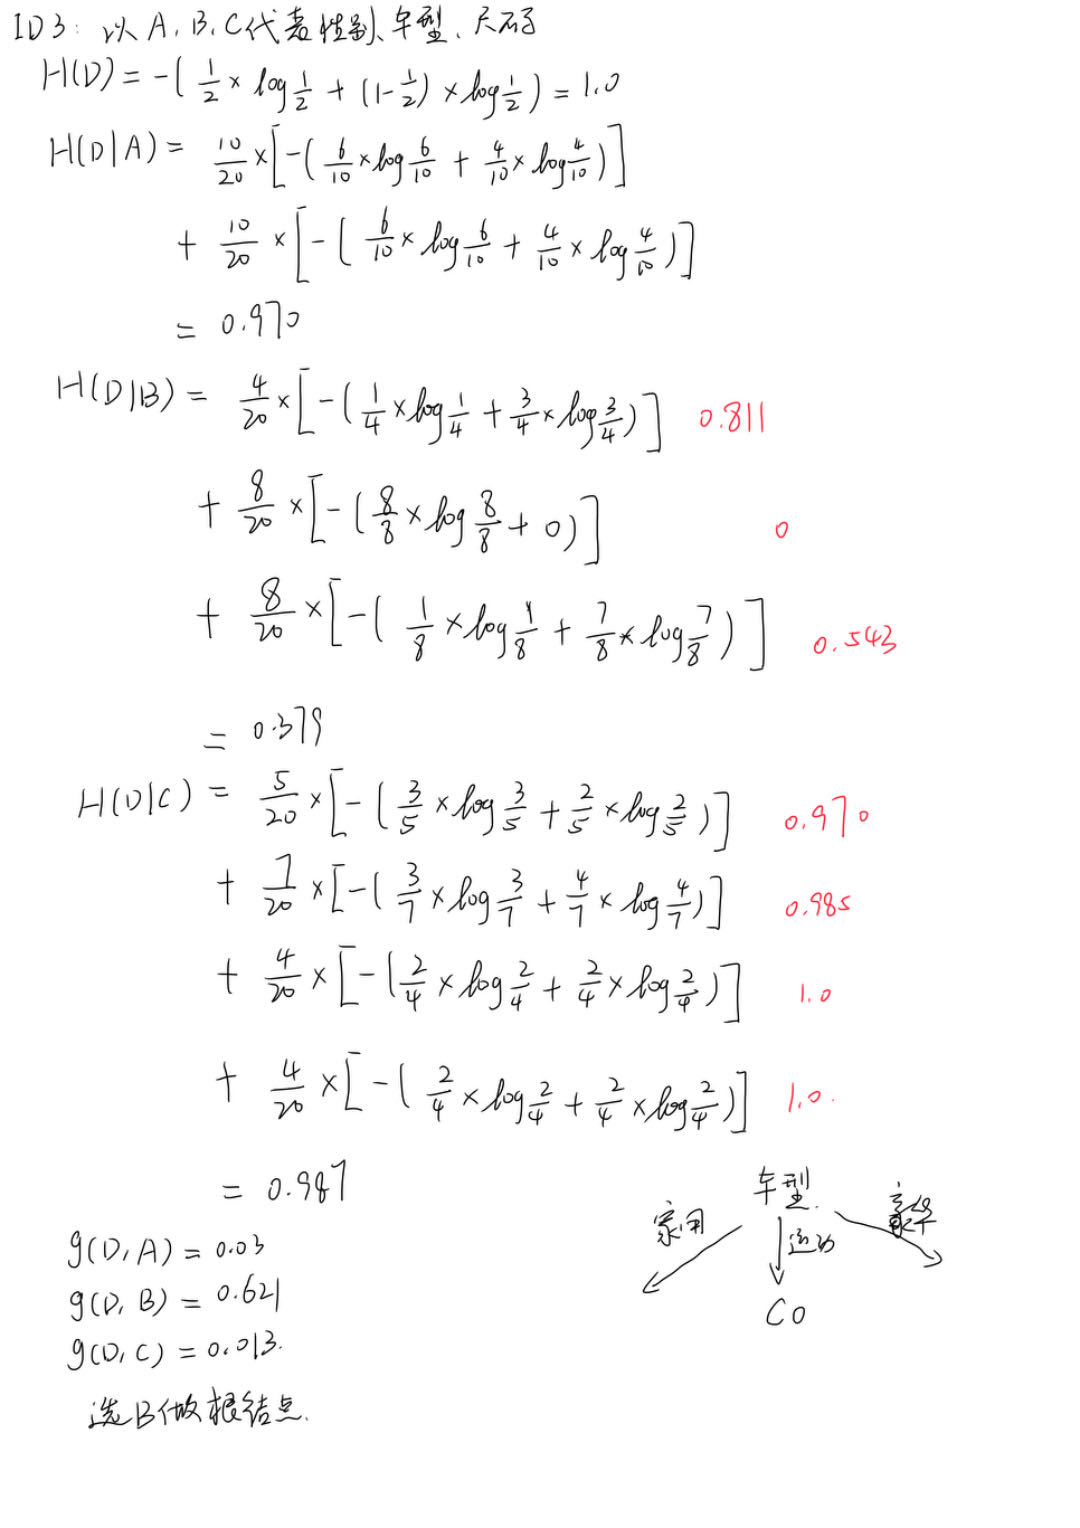 ID3: 以 A, B, C代表性别、车型、尺码
H(D) = -( 1/2 × log 1/2 + (1-1/2) × log 1/2 ) = 1.0
H(D|A) = 10/20 × [-( 6/10 × log 6/10 + 4/10 × log 4/10 )]
+ 10/20 × [-( 6/10 × log 6/10 + 4/10 × log 4/10 )]
= 0.970
H(D|B) = 4/20 × [-( 1/4 × log 1/4 + 3/4 × log 3/4 )] 0.811
+ 8/20 × [-( 8/8 × log 8/8 + 0 )] 0
+ 8/20 × [-( 1/8 × log 1/8 + 7/8 × log 7/8 )] 0.543
= 0.379
H(D|C) = 5/20 × [-( 3/5 × log 3/5 + 2/5 × log 2/5 )] 0.970
+ 7/20 × [-( 3/7 × log 3/7 + 4/7 × log 4/7 )] 0.985
+ 4/20 × [-( 2/4 × log 2/4 + 2/4 × log 2/4 )] 1.0
+ 4/20 × [-( 2/4 × log 2/4 + 2/4 × log 2/4 )] 1.0.
= 0.987
g(D, A) = 0.03
g(D, B) = 0.621
g(D, C) = 0.013.
选B做根结点.
车型.
家用 运动 豪华
C0